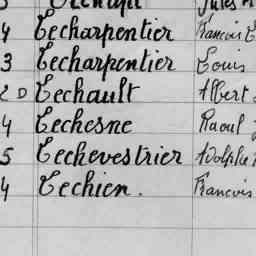 4 Lecharpentier François
3 Lecharpentier Louis
2 D Lechault Albert
4 Lechesne Raoul
5 Lechevestrier Adolphe
4 Lechien. François